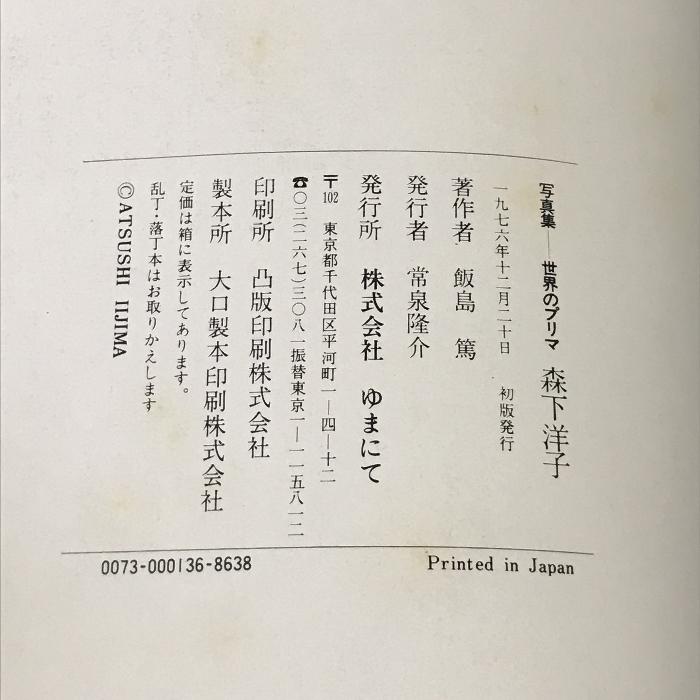 写真集──世界のプリマ 森下洋子
一九七六年十二月二十日 初版発行
著作者 飯島 篤
発行者 常泉隆介
発行所 株式会社 ゆまにて
〒102 東京都千代田区平河町一―四―十二
☎〇三(二六七)三〇八一振替東京一―一一五八一二
印刷所 凸版印刷株式会社
製本所 大口製本印刷株式会社
定価は箱に表示してあります。
乱丁・落丁本はお取りかえします
©ATSUSHI IIJIMA
0073-000136-8638
Printed in Japan